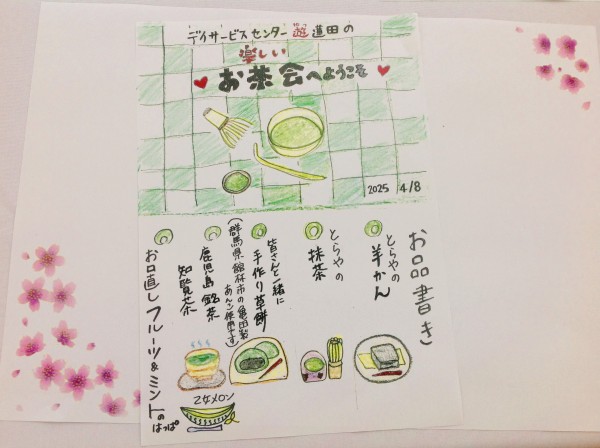 デイサービスセンター遊蓮田の
楽しい
お茶会へようこそ
2025 4/8
お品書き
とらやの
羊かん
とらやの
抹茶
皆さんと一緒に
手作り草餅
(群馬県館林市の亀田製
あんこ使用です)
鹿児島銘茶
知覧茶
お口直しフルーツ&ミントのはっぱ
乙女メロン